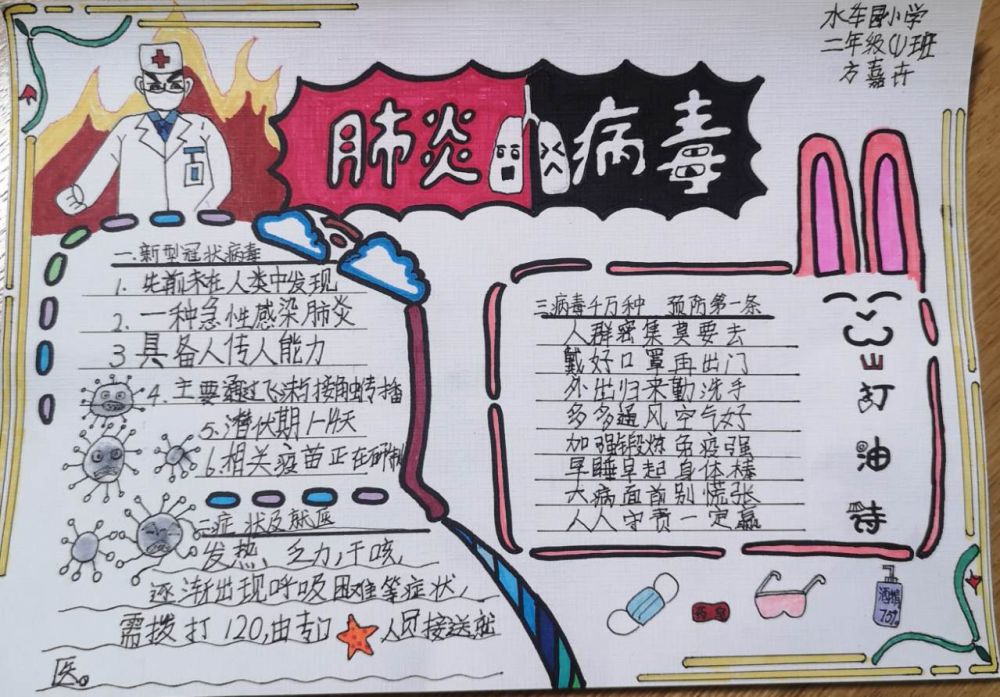 水车园小学
二年级(1)班
方嘉卉
肺炎病毒
一.新型冠状病毒
1. 先前未在人类中发现
2. 一种急性感染肺炎
3 具备人传人能力
4. 主要通过飞沫与接触传播
5. 潜伏期1-14天
6. 相关疫苗正在研制
二.症状及就医
发热，乏力，干咳，
逐渐出现呼吸困难等症状，
需拨打120，由专门人员接送就
医。
三病毒千万种 预防第一条
人群密集莫要去
戴好口罩再出门
外出归来勤洗手
多多通风空气好
加强锻炼免疫强
早睡早起身体棒
大病面前别慌张
人人守责一定赢
打油诗
香皂
酒精
75%